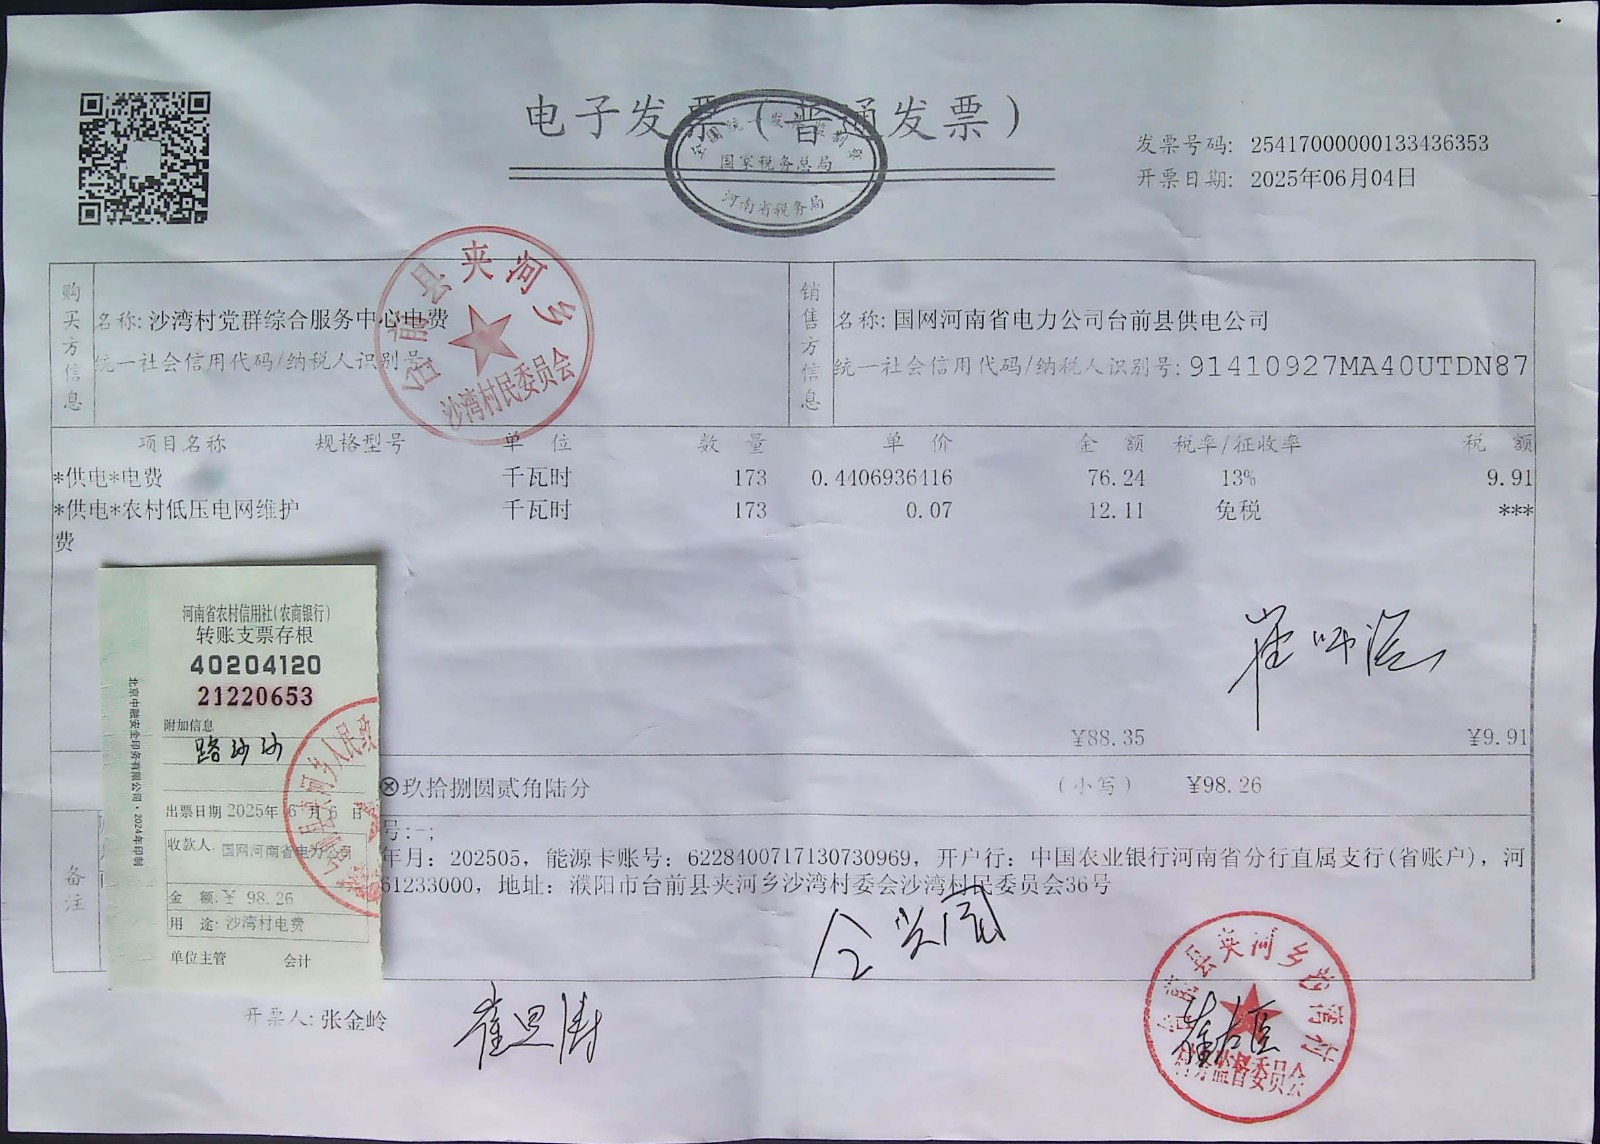 电子发票（普通发票）
全国统一发票监制章
国家税务总局
河南省税务局
发票号码: 25417000000133436353
开票日期: 2025年06月04日
购买方信息
名称: 沙湾村党群综合服务中心电费
统一社会信用代码/纳税人识别号:
台前县夹河乡
沙湾村民委员会
销售方信息
名称: 国网河南省电力公司台前县供电公司
统一社会信用代码/纳税人识别号: 91410927MA40UTDN87
项目名称 规格型号 单 位 数 量 单 价 金 额 税率/征收率 税 额
*供电*电费 千瓦时 173 0.4406936416 76.24 13% 9.91
*供电*农村低压电网维护 千瓦时 173 0.07 12.11 免税 ***
费
¥88.35 ¥9.91
ⓧ玖拾捌圆贰角陆分 (小写) ¥98.26
备注
号:-;
年月: 202505, 能源卡账号: 6228400717130730969, 开户行: 中国农业银行河南省分行直属支行(省账户), 河
61233000, 地址: 濮阳市台前县夹河乡沙湾村委会沙湾村民委员会36号
河南省农村信用社(农商银行)
转账支票存根
40204120
21220653
附加信息
路沙沙
出票日期 2025年 6 月 6 日
收款人: 国网河南省电力公司
金 额: ¥ 98.26
用 途: 沙湾村电费
单位主管 会计
北京中融安全印务有限公司·2024年印制
开票人: 张金岭
台前县夹河乡沙湾村